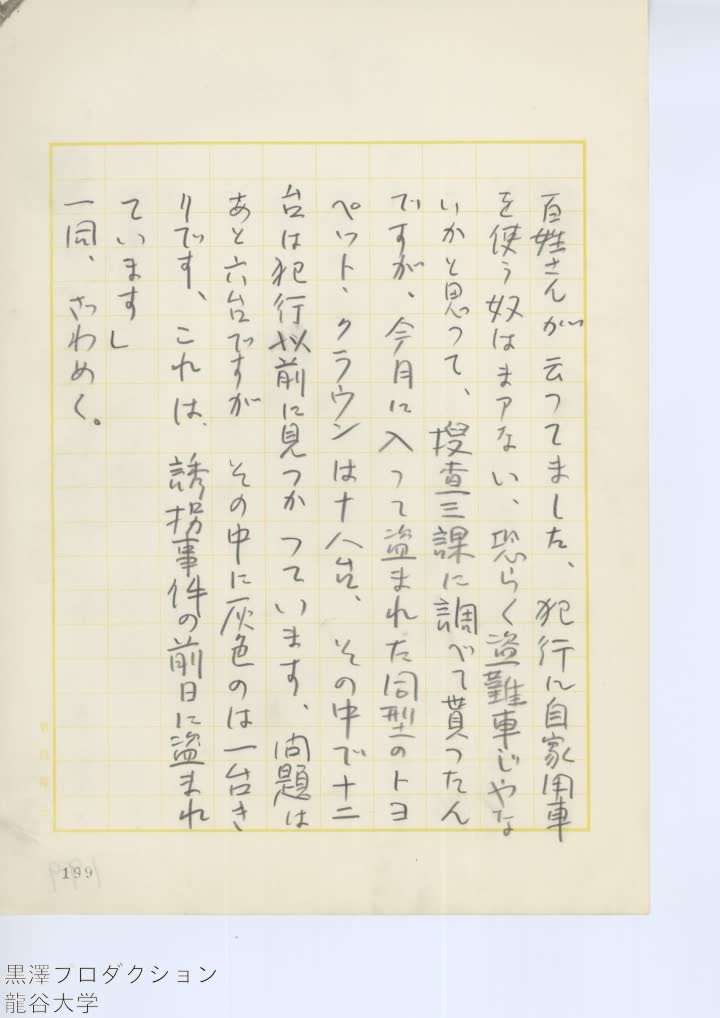 百姓さんが云つてました、犯行に自家用車
を使う奴はまアない、恐らく盗難車じやな
いかと思つて、捜査三課に調べて貰つたん
ですが、今月に入つて盗まれた同型のトヨ
ペット・クラウンは十八台、その中で十二
台は犯行以前に見つかつています、問題は
あと六台ですが　その中に灰色のは一台き
りです、これは、誘拐事件の前日に盗まれ
ています」
一同、ざわめく。
199
黒澤プロダクション
龍谷大学